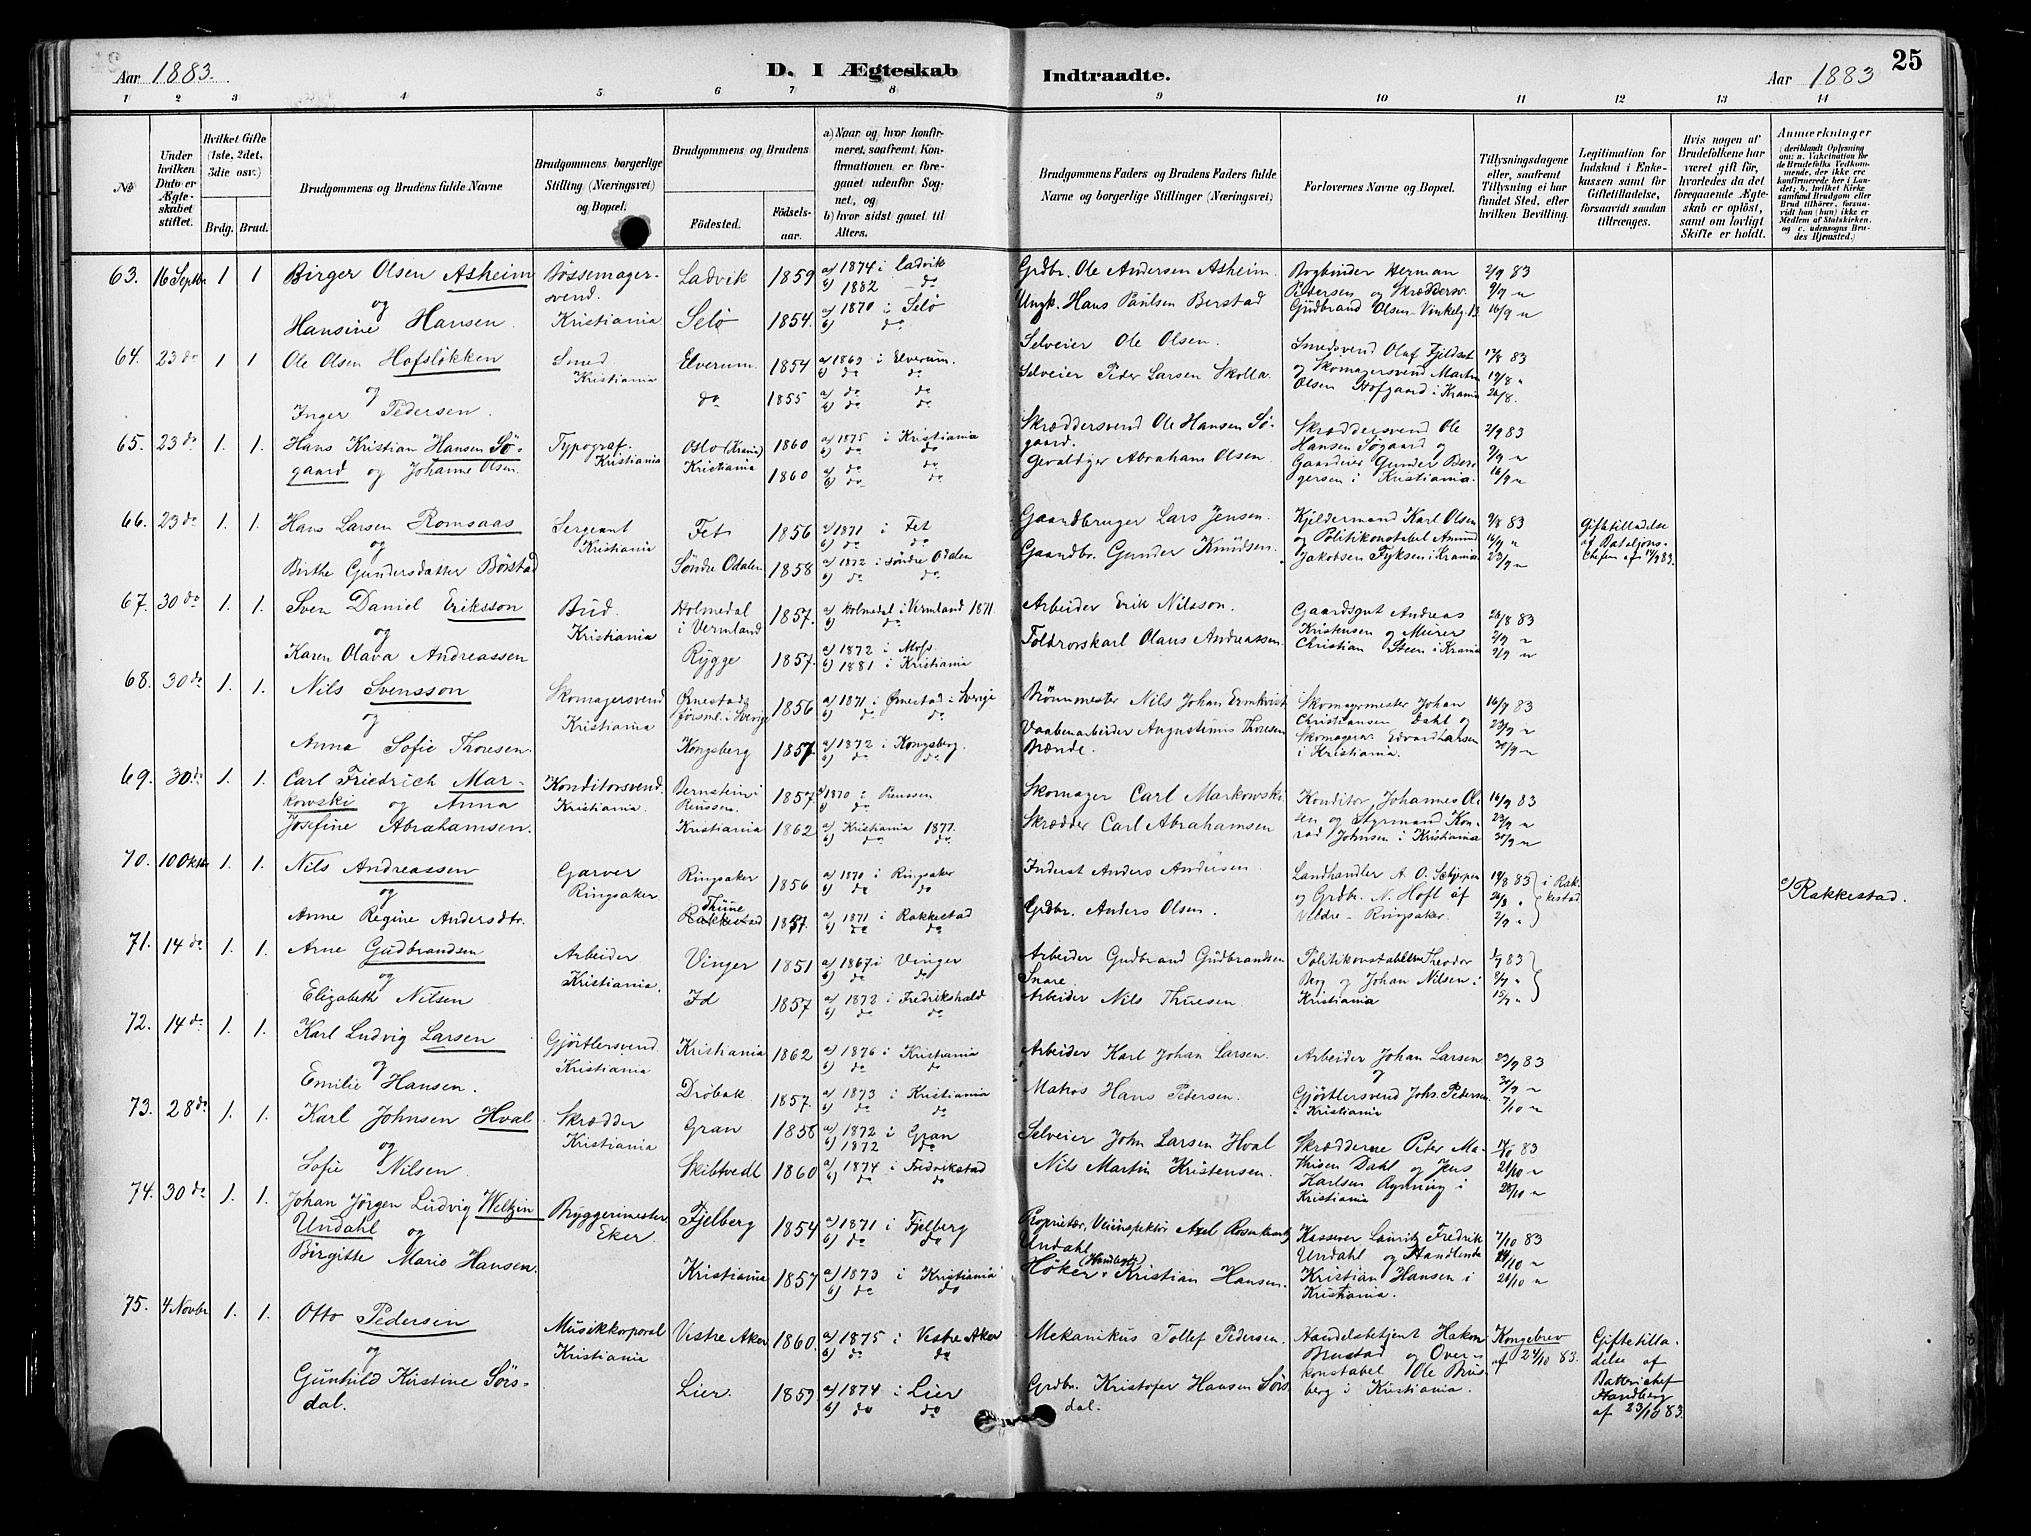 Aar 1883.
D. I Ægteskab Indtraadte.
Aar 1883
25
1 2 3 4 5 6 7 8 9 10 11 12 13 14
No
Under hvilken Dato er Ægteskabet stiftet.
Hvilket Gifte (1ste, 2det, 3die osv.)
Brdg. Brud.
Brudgommens og Brudens fulde Navne
Brudgommens borgerlige Stilling (Næringsvei) og Bopæl.
Brudgommens og Brudens
Födested. Födselsaar.
a) Naar og hvor konfirmeret, saafremt Konfirmationen er foregaaet udenfor Sognet, og
b) hvor sidst gaaet til Alters.
Brudgommens Faders og Brudens Faders fulde Navne og borgerlige Stillinger (Næringsvei)
Forlovernes Navne og Bopæl.
Tillysningsdagene eller, saafremt Tillysning ei har fundet Sted, efter hvilken Bevilling.
Legitimation for Indskud i Enkekassen samt for Giftetilladelse, forsaavidt saadan tiltrænges.
Hvis nogen af Brudefolkene har været gift, hvorledes da det foregaaende Ægteskab er oplöst, samt om lovligt Skifte er holdt.
Anmærkninger (deriblandt Oplysning om: a. Vakcination for de Brudefolks Vedkommende, der ikke ere konfirmerede her i Landet; b. hvilket Kirkesamfund Brudgom eller Brud tilhörer, forsaavidt han (hun) ikke er Medlem af Statskirken, og c. udensogns Brudes Hjemsted.)
63. 16 Septbr 1 1 Birger Olsen Asheim Bössemagersvend. Ladvik 1859 a) 1874 i Ladvik b) 1882 - do Grdbr. Ole Andersen Asheim. Bogbinder Herman 2/9 83
og Pedersen og Skræddersv. 9/9 "
Hansine Hansen. Kristiania Selø 1854. a) 1870 i Selø b) do Ungk. Hans Paulsen Berstad Gudbrand Olsen - Vinkelg. 13 16/9 "
64. 23 do 1 1 Ole Olsen Hofsløkken Smed Kristiania Elverum. 1854 a) 1869 i Elverum. b) do do Selveier Ole Olsen. Smedsvend Olaf Fjeldset 12/8 83
og Skomagersvend Martin 19/8 "
Inger Pedersen. do 1855 a) do do b) do do Selveier Peder Larsen Skolla. Olsen Hofgaard i Krania 26/8.
65. 23 do 1. 1. Hans Kristian Hansen Sögaard og Johanne Olsen. Typograf. Kristiania Oslo (Krania) 1860 a) 1875 i Kristiania b) do do Skræddersvend Ole Hansen Sögaard. Skræddersvend Ole 2/9 83
Hansen Søgaard og 9/9 "
Kristiania 1860 a) do do b) do do Gevaldiger Abraham Olsen. Gaardeier Gunder Bergersen i Kristiania. 16/9 "
66. 23 do 1. 1. Hans Larsen Romsaas Sergeant Kristiania Fet 1856 a) 1871 i Fet b) do do Gaardbruger Lars Jensen. Kjeldermand Karl Olsen 9/8 83 Giftetilladelse
og Politikonstabel Amund 16/9 " af Bataljons-
Birthe Gundersdatter Børstad Söndre Odalen 1858 a) 1872 i Söndre Odalen b) do do Gaardbr. Gunder Knudsen. Jakobsen Fyksen i Krania 23/9 " Chefen af 14/9 83.
67. 30 do 1. 1. Sven Daniel Eriksson Bud. Kristiania Holmedal i Vermland 1857. a) Holmedal i Vermland 1871. b) do Arbeider Erik Nilsson. Gaardsgut Andreas 26/8 83
og Kristensen og Murer 2/9 "
Karen Olava Andreassen Rygge 1857. a) 1872 i Moss. b) 1881 i Kristiania Toldrorskarl Olaus Andreassen Christian Steen i Krania 9/9 "
68. 30 do 1. 1. Nils Svensson Skomagersvend Kristiania Ørnestad försml. i Sverige 1856 a) 1871 i Ørnestad i Sverige b) do do Brönnmester Nils Johan Ermkvist Skomagermester Johan 16/9 83
og Christiansen Dahl og 23/9 "
Anna Sofie Thoresen. Kongsberg 1857 a) 1872 i Kongsberg. b) do do Vaabenarbeider Augustinus Thoresen Brænde. Skomager Edvard Larsen i Kristiania. 30/9 "
69. 30 do 1. 1. Carl Friedrich Markowski og Anna Josefine Abrahamsen. Konditorsvend. Kristiania. Bernstein i Reussen. 1857. a) 1870 i Reussen Skomager Carl Markowski Konditor Johannes Olsen og Styrmand Konrad Johnsen i Kristiania 16/9 83
Kristiania 1862 a) Kristiania 1877. b) do do Skrædder Carl Abrahamsen 23/9 " 30/9 "
70. 10 Oktbr 1. 1. Nils Andreassen Garver Ringsaker Ringsaker 1856 a) 1870 i Ringsaker b) do do Inderst Anders Andersen. Landhandler A. O. Schjerpen 19/8 83 i Rakkestad
og og Grdbr. N. Hoft af 26/8 " c) Rakkestad.
Anne Regine Andersdtr. Thune Rakkestad 1857. a) 1871 i Rakkestad b) do do Grdbr. Anders Olsen. Veldre - Ringsaker. 2/9 "
71. 14 do 1. 1. Arne Gudbrandsen Arbeider Kristiania. Vinger 1851 a) 1867 i Vinger b) do do Arbeider Gudbrand Gudbrandsen Snare. Politikonstablerne Theodor 1/7 83
og Berg og Johan Nilsen i 8/7 "
Elizabeth Nilsen Id 1857 a) 1872 i Fredrikshald b) do do Arbeider Nils Thuesen. Kristiania 15/7 "
72. 14 do 1. 1. Karl Ludvig Larsen Gjörtlersvend Kristiania Kristiania 1862 a) 1876 i Kristiania b) do do Arbeider Karl Johan Larsen. Arbeider Johan Larsen 23/9 83
og og 30/9 "
Emilie Hansen. Dröbak 1857. a) 1873 i Kristiania b) do do Matros Hans Pedersen. Gjörtlersvend Johs. Pedersen i Kristiania 7/10 "
73. 28 do 1. 1. Karl Johnsen Hval Skrædder Kristiania Gran 1858 a) 1872 i Gran b) 1872 do Selveier John Larsen Hval Skrædderne Peter Mathisen Dahl og Jens Karlsen Rynning i Kristiania 14/10 83
og 21/10 "
Sofie Nilsen. Skibtvedt 1860 a) 1874 i Fredrikstad b) do do Nils Martin Kristensen. 28/10 "
74. 30 do 1. 1. Johan Jörgen Ludvig Weltzin Undahl og Bryggerimester Eker Fjelberg 1854 a) 1871 i Fjelberg b) do do Proprietær, Veiinspektör Axel Rosenkrantz Undahl Kasserer Lauritz Fredrik 7/10 83
Undahl og Handlende 14/10 "
Birgitte Marie Hansen. Kristiania 1857 a) 1873 i Kristiania b) do do Höker (Handlende) Kristian Hansen. Kristian Hansen i Kristiania. 21/10 "
75. 4 Novbr 1. 1. Otto Pedersen Musikkorporal Kristiania Vestre Aker 1860. a) 1875 i Vestre Aker b) do do Mekanikus Tollef Pedersen. Handelsbetjent Hakon Brustad og Overkonstabel Ole Brusberg i Kristiania. Kongebrev af 24/10 83. Giftetilladelse af Batterichef Handberg af 23/10 83.
og
Gunhild Kirstine Sörsdal. Lier. 1859. a) 1874 i Lier b) do do Grdbr. Kristofer Hansen Sörsdal.